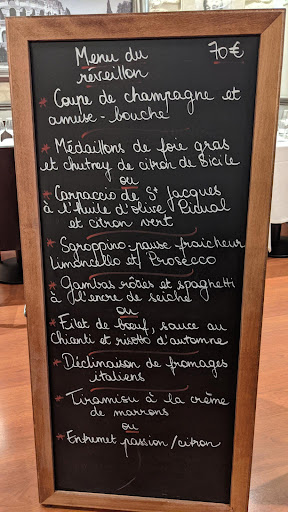 Menu du 70€
réveillon
* Coupe de champagne et
amuse-bouche
* Médaillons de foie gras
et chutney de citron de Sicile
ou
* Carpaccio de St Jacques
à l'Huile d'olive Picual
et citron vert
* Sgroppino-pause fraîcheur
Limoncello et Prosecco
* Gambas rôties et spaghetti
à l'encre de seiche
ou
* Filet de bœuf, sauce au
chianti et risotto d'automne
* Déclinaison de fromages
italiens
* Tiramisu à la crème
de marrons
ou
* Entremet passion/citron